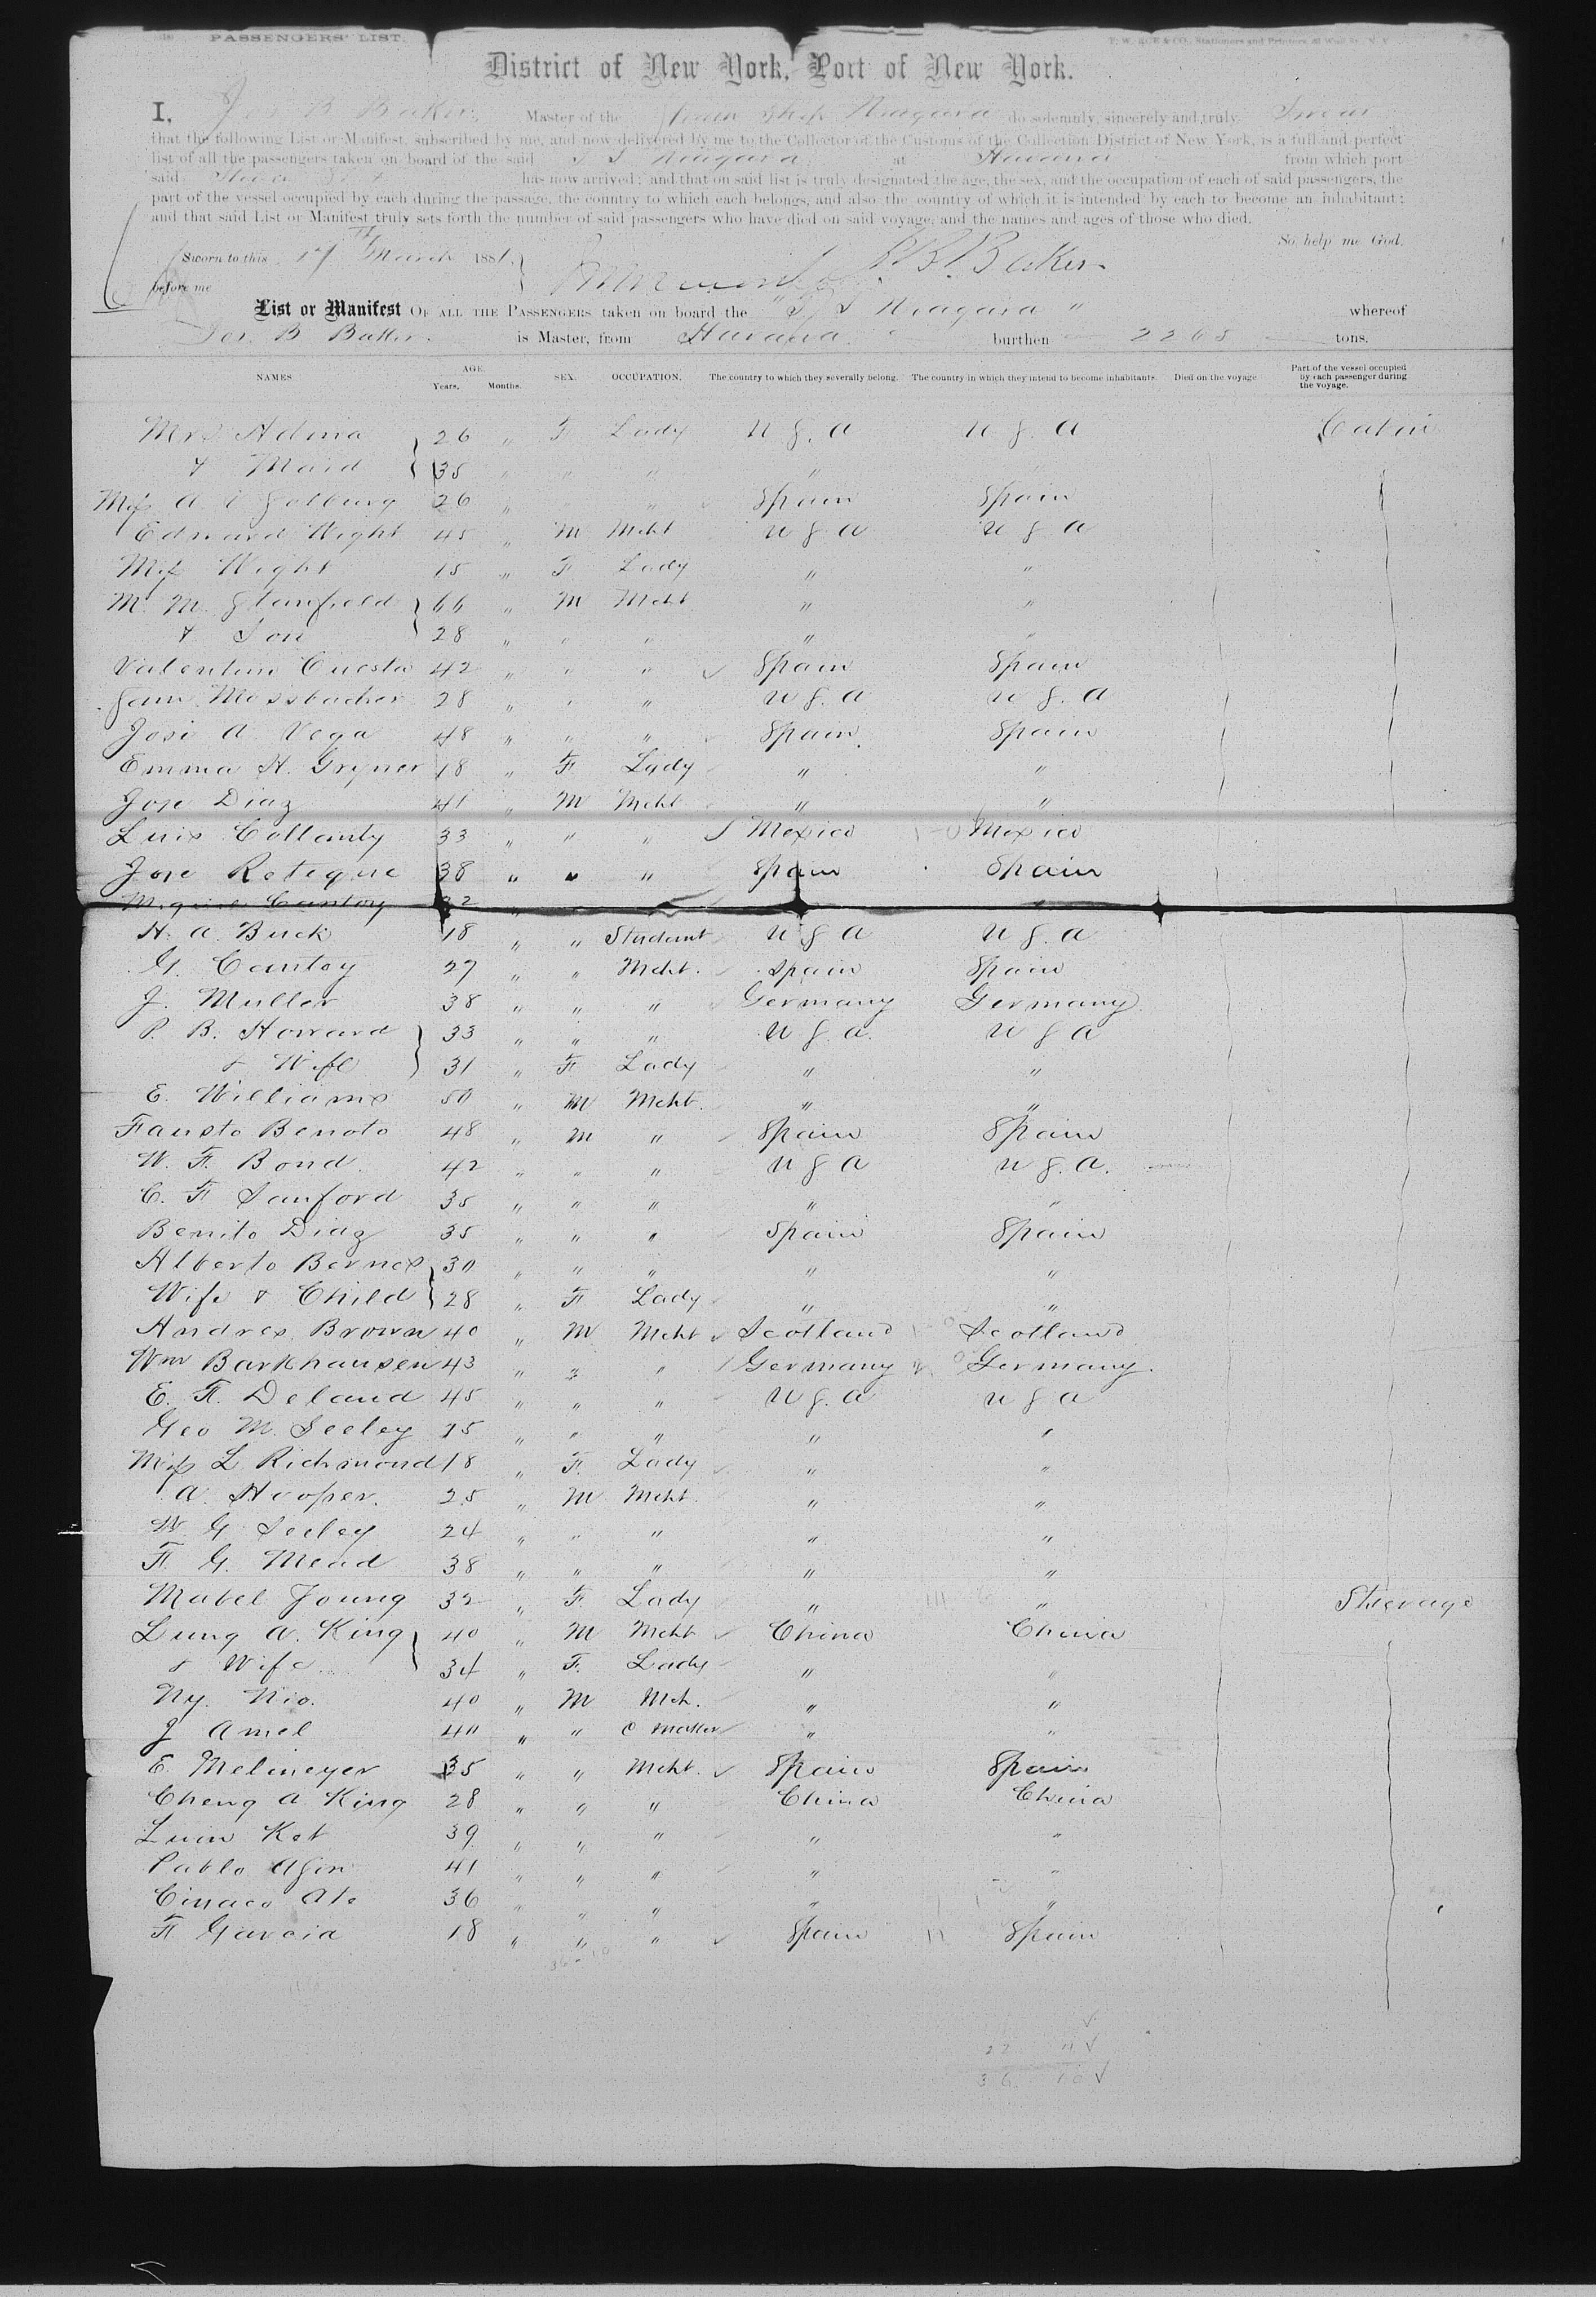 PASSENGERS' LIST.
District of New York, Port of New York.
I, Jos B Baker Master of the Steam Ship Niagara do solemnly, sincerely and truly Swear
that the following List or Manifest, subscribed by me, and now delivered by me to the Collector of the Customs of the Collection District of New York, is a full and perfect
list of all the passengers taken on board of the said S S Niagara at Havana from which port
said has now arrived; and that on said list is truly designated the age, the sex, and the occupation of each of said passengers, the
part of the vessel occupied by each during the passage, the country to which each belongs, and also the country of which it is intended by each to become an inhabitant;
and that said List or Manifest truly sets forth the number of said passengers who have died on said voyage, and the names and ages of those who died.
So help me God.
Sworn to this 17th March 1881. J. B. Baker
before me
List or Manifest OF ALL THE PASSENGERS taken on board the "S. S Niagara" whereof
Jos. B Baker is Master, from Havana burthen 2265 tons.
NAMES AGE. Years. Months. SEX. OCCUPATION. The country to which they severally belong. The country in which they intend to become inhabitants. Died on the voyage Part of the vessel occupied by each passenger during the voyage.
Mrs Adina 26 " F Lady U S. A U S. A Cabin
& Maid 35 " " " " "
Miss A 26 " " " Spain Spain
Edward Wight 45 " M Mcht U S A U S A
Miss Wight 15 " F Lady " "
M. M. Stanfield 66 " M Mcht " "
& Son 28 " " " " "
Valentin Cuesta 42 " " " Spain Spain
Sam Mossbacher 28 " " " U S. A U S. A
Jose A Vega 48 " " " Spain Spain
Emma H. Gryner 18 " F Lady " "
Jose Diaz 41 " M Mcht " "
Luis Collanty 33 " " " Mexico Mexico
Jose Retegue 38 " " " Spain Spain
Miguel Cantoy 32 "
H. A. Buck 18 " " Student U S A U S. A
G. Cantoy 27 " " Mcht. Spain Spain
J. Muller 38 " " " Germany Germany
P. B. Howard 33 " " " U S. A. U S A
& Wife 31 " F Lady " "
E. Williams 50 " M Mcht. " "
Fausto Benoto 48 " M " Spain Spain
W. F. Bond 42 " " " U S A U S. A.
C. F Sanford 35 " " " " "
Benito Diaz 35 " " " Spain Spain
Alberto Bernes 30 " " " " "
Wife & Child 28 " F Lady " "
Andres Brown 40 " M Mcht Scotland Scotland
Wm Barkhausen 43 " " " Germany Germany.
E. F. Deland 45 " " " U S. A U S A
Geo M. Seeley 25 " " " " "
Miss L Richmond 18 " F. Lady " "
A. Hooper. 25 " M Mcht. " "
W G Seeley 24 " " " " "
F. G. Mead 38 " " " " "
Mabel Young 32 " F. Lady " " Steerage
Lung A. King 40 " M Mcht China China
& Wife 34 " F. Lady " "
Ny. Nio. 40 " M Mch. " "
J Amel 40 " " C Maker " "
E. Melineyer 35 " " Mcht. Spain Spain
Cheng A King 28 " " " China China
Luin Ket 39 " " " " "
Pablo Asin 41 " " " " "
Ciriaco Ate 36 " " " " "
F Garcia 18 " " " Spain Spain